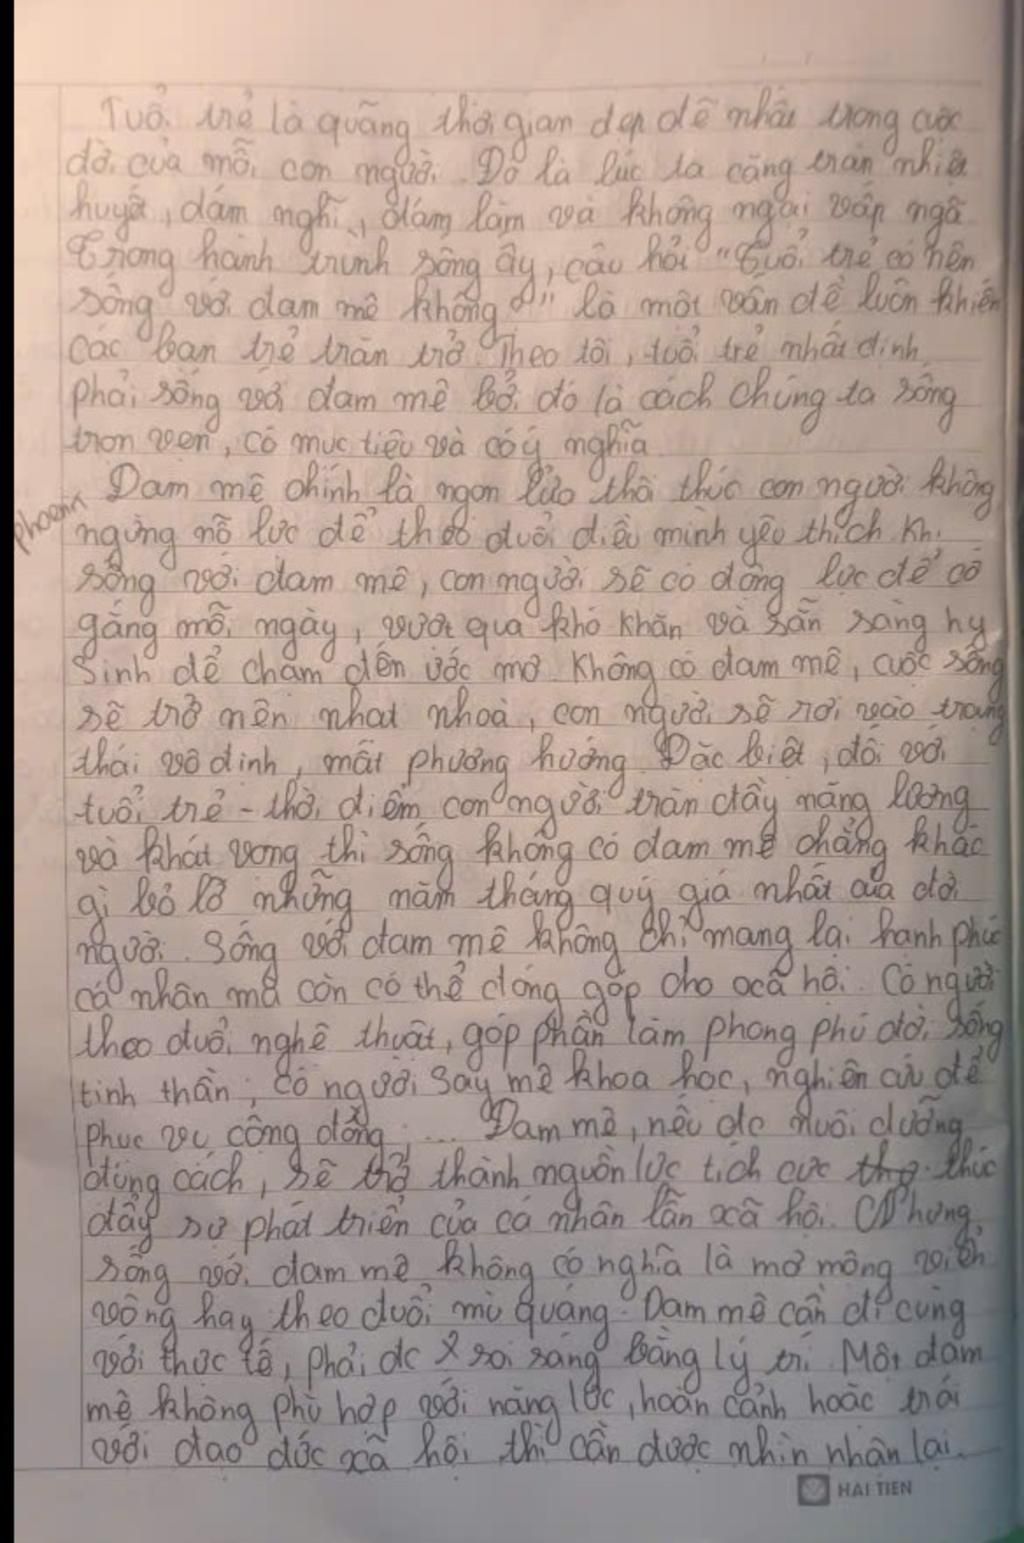 Tuổi trẻ là quãng thời gian đẹp đẽ nhất trong cuộc
đời của mỗi con người. Đó là lúc ta căng tràn nhiệt
huyết, dám nghĩ, dám làm và không ngại vấp ngã
Trong hành trình sống ấy, câu hỏi "Tuổi trẻ có nên
sống với đam mê không?" là một vấn đề luôn khiến
các bạn trẻ trăn trở. Theo tôi, tuổi trẻ nhất định
phải sống với đam mê bởi đó là cách chúng ta sống
trọn vẹn, có mục tiêu và có ý nghĩa.
Đam mê chính là ngọn lửa thôi thúc con người không
phoenix
ngừng nỗ lực để theo đuổi điều mình yêu thích. Khi
sống với đam mê, con người sẽ có động lực để cố
gắng mỗi ngày, vượt qua khó khăn và sẵn sàng hy
sinh để chạm đến ước mơ. Không có đam mê, cuộc sống
sẽ trở nên nhạt nhoà, con người sẽ rơi vào trạng
thái vô định, mất phương hướng. Đặc biệt, đối với
tuổi trẻ - thời điểm con người tràn đầy năng lượng
và khát vọng thì sống không có đam mê chẳng khác
gì bỏ lỡ những năm tháng quý giá nhất của đời
người. Sống với đam mê không chỉ mang lại hạnh phúc
cá nhân mà còn có thể đóng góp cho xã hội. Có người
theo đuổi nghệ thuật, góp phần làm phong phú đời sống
tinh thần; có người say mê khoa học, nghiên cứu để
phục vụ cộng đồng; ... Đam mê, nếu đc nuôi dưỡng
đúng cách, sẽ trở thành nguồn lực tích cực thúc
đẩy sự phát triển của cá nhân lẫn xã hội. Nhưng,
sống với đam mê không có nghĩa là mơ mộng viển
vông hay theo đuổi mù quáng. Đam mê cần đi cùng
với thực tế, phải đc soi sáng bằng lý trí. Một đam
mê không phù hợp với năng lực, hoàn cảnh hoặc trái
với đạo đức xã hội thì cần được nhìn nhận lại.
HẢI TIẾN